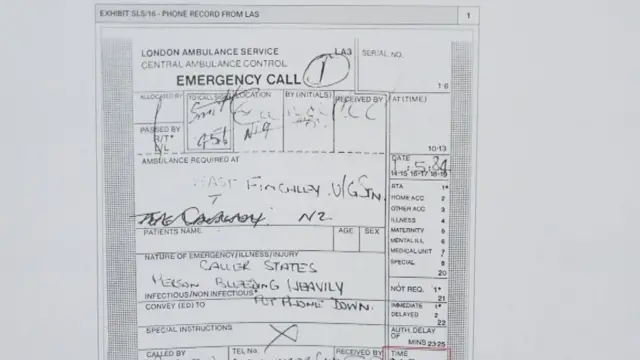 EXHIBIT SLS/16 - PHONE RECORD FROM LAS 1
LONDON AMBULANCE SERVICE LA3 SERIAL NO.
CENTRAL AMBULANCE CONTROL
EMERGENCY CALL 1 1 6
ALLOCATED BY TO CALL SIGN LOCATION BY (INITIALS) RECEIVED BY AT (TIME)
PASSED BY
R/T*
N/L
456 N19
10-13
AMBULANCE REQUIRED AT DATE
1.5.84
14-15 16-17 18-19
EAST FINCHLEY. U/G STN.
RTA 1*
HOME ACC 2
N2 OTHER ACC 3
ILLNESS 4
PATIENTS NAME AGE SEX MATERNITY 5
MENTAL ILL 6
MEDICAL UNIT 7
NATURE OF EMERGENCY/ILLNESS/INJURY SPECIAL 8
20
CALLER STATES
PERSON BLEEDING HEAVILY NOT REQ. 1*
21
INFECTIOUS/NON INFECTIOUS*
PUT PHONE DOWN.
CONVEY (ED) TO IMMEDIATE 1*
DELAYED 2
22
SPECIAL INSTRUCTIONS X AUTH. DELAY
OF
MINS 23-25
CALLED BY TEL No. RECEIVED BY TIME